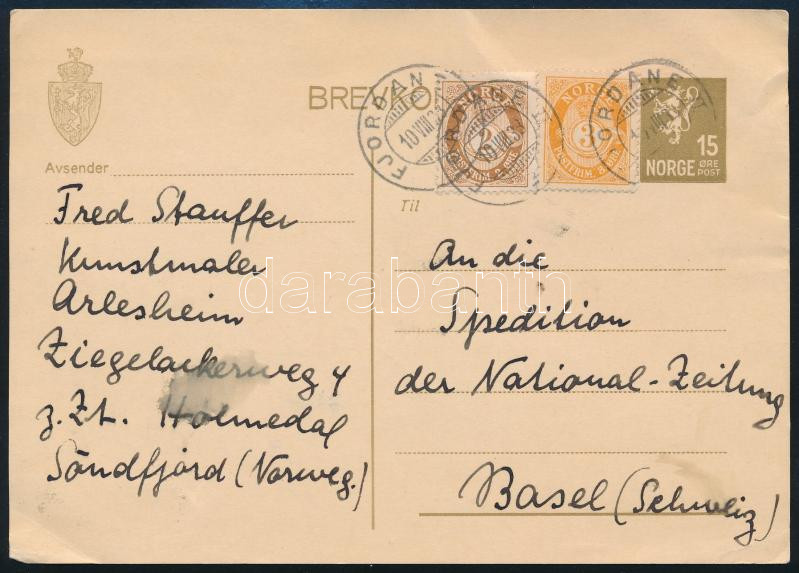 BREVKO
NORGE
2
POSTFRIM. 2 ØRE
NORGE
3
POSTFRIM. 3 ØRE
15
NORGE ØRE
POST
FJORDANE
10 VIII 3
FJORDANE
FJORDANE
Avsender
Fred Stauffer
Kunstmaler
Arlesheim
Ziegelackerweg 4
z.Zt. Holmedal
Söndfjord (Norweg.)
Til
An die
Spedition
der National-Zeitung
Basel (Schweiz)
darabanth